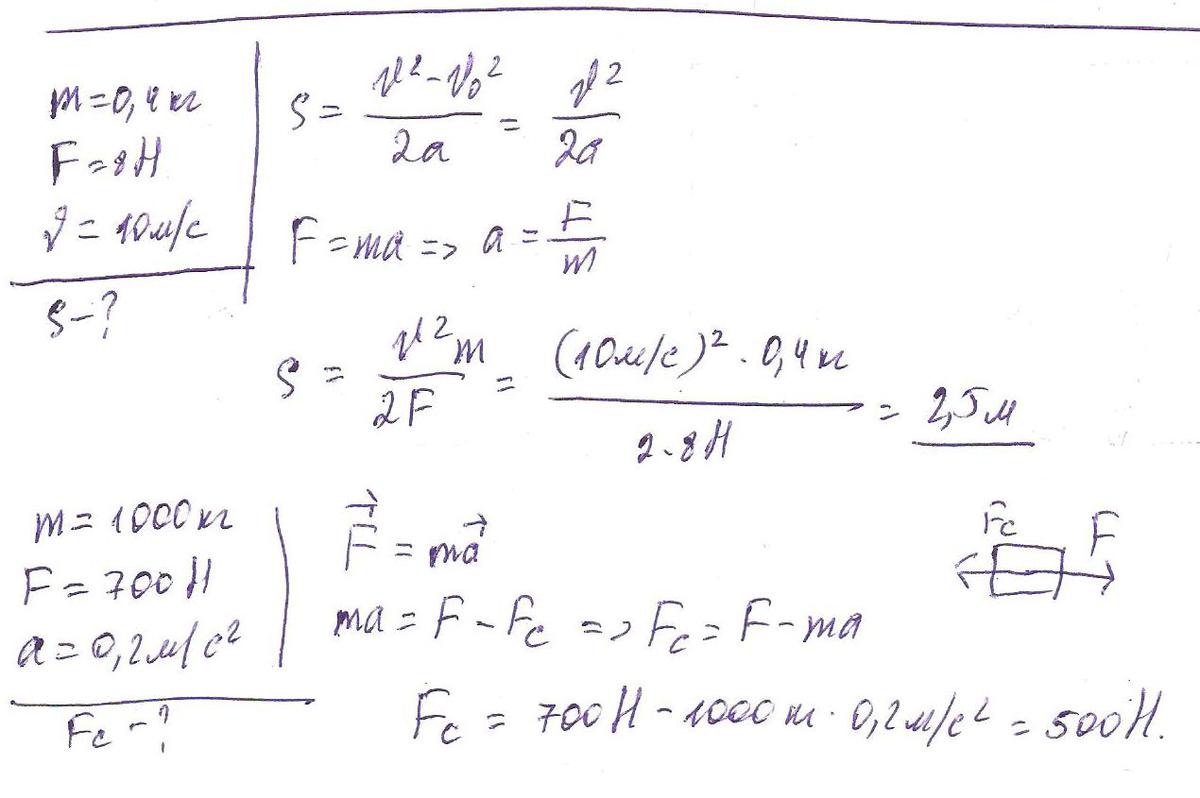 m=0,4кг
F=8Н
v=10м/с
S-?
S = (v²-v₀²)/2a = v²/2a
F=ma => a = F/m
S = v²m/2F = (10м/с)²·0,4кг/2·8Н = 2,5м
m=1000кг
F=700Н
a=0,2м/с²
Fc-?
F⃗ = ma⃗
ma = F - Fc => Fc = F - ma
Fc = 700Н - 1000кг · 0,2м/с² = 500Н.
Fc F